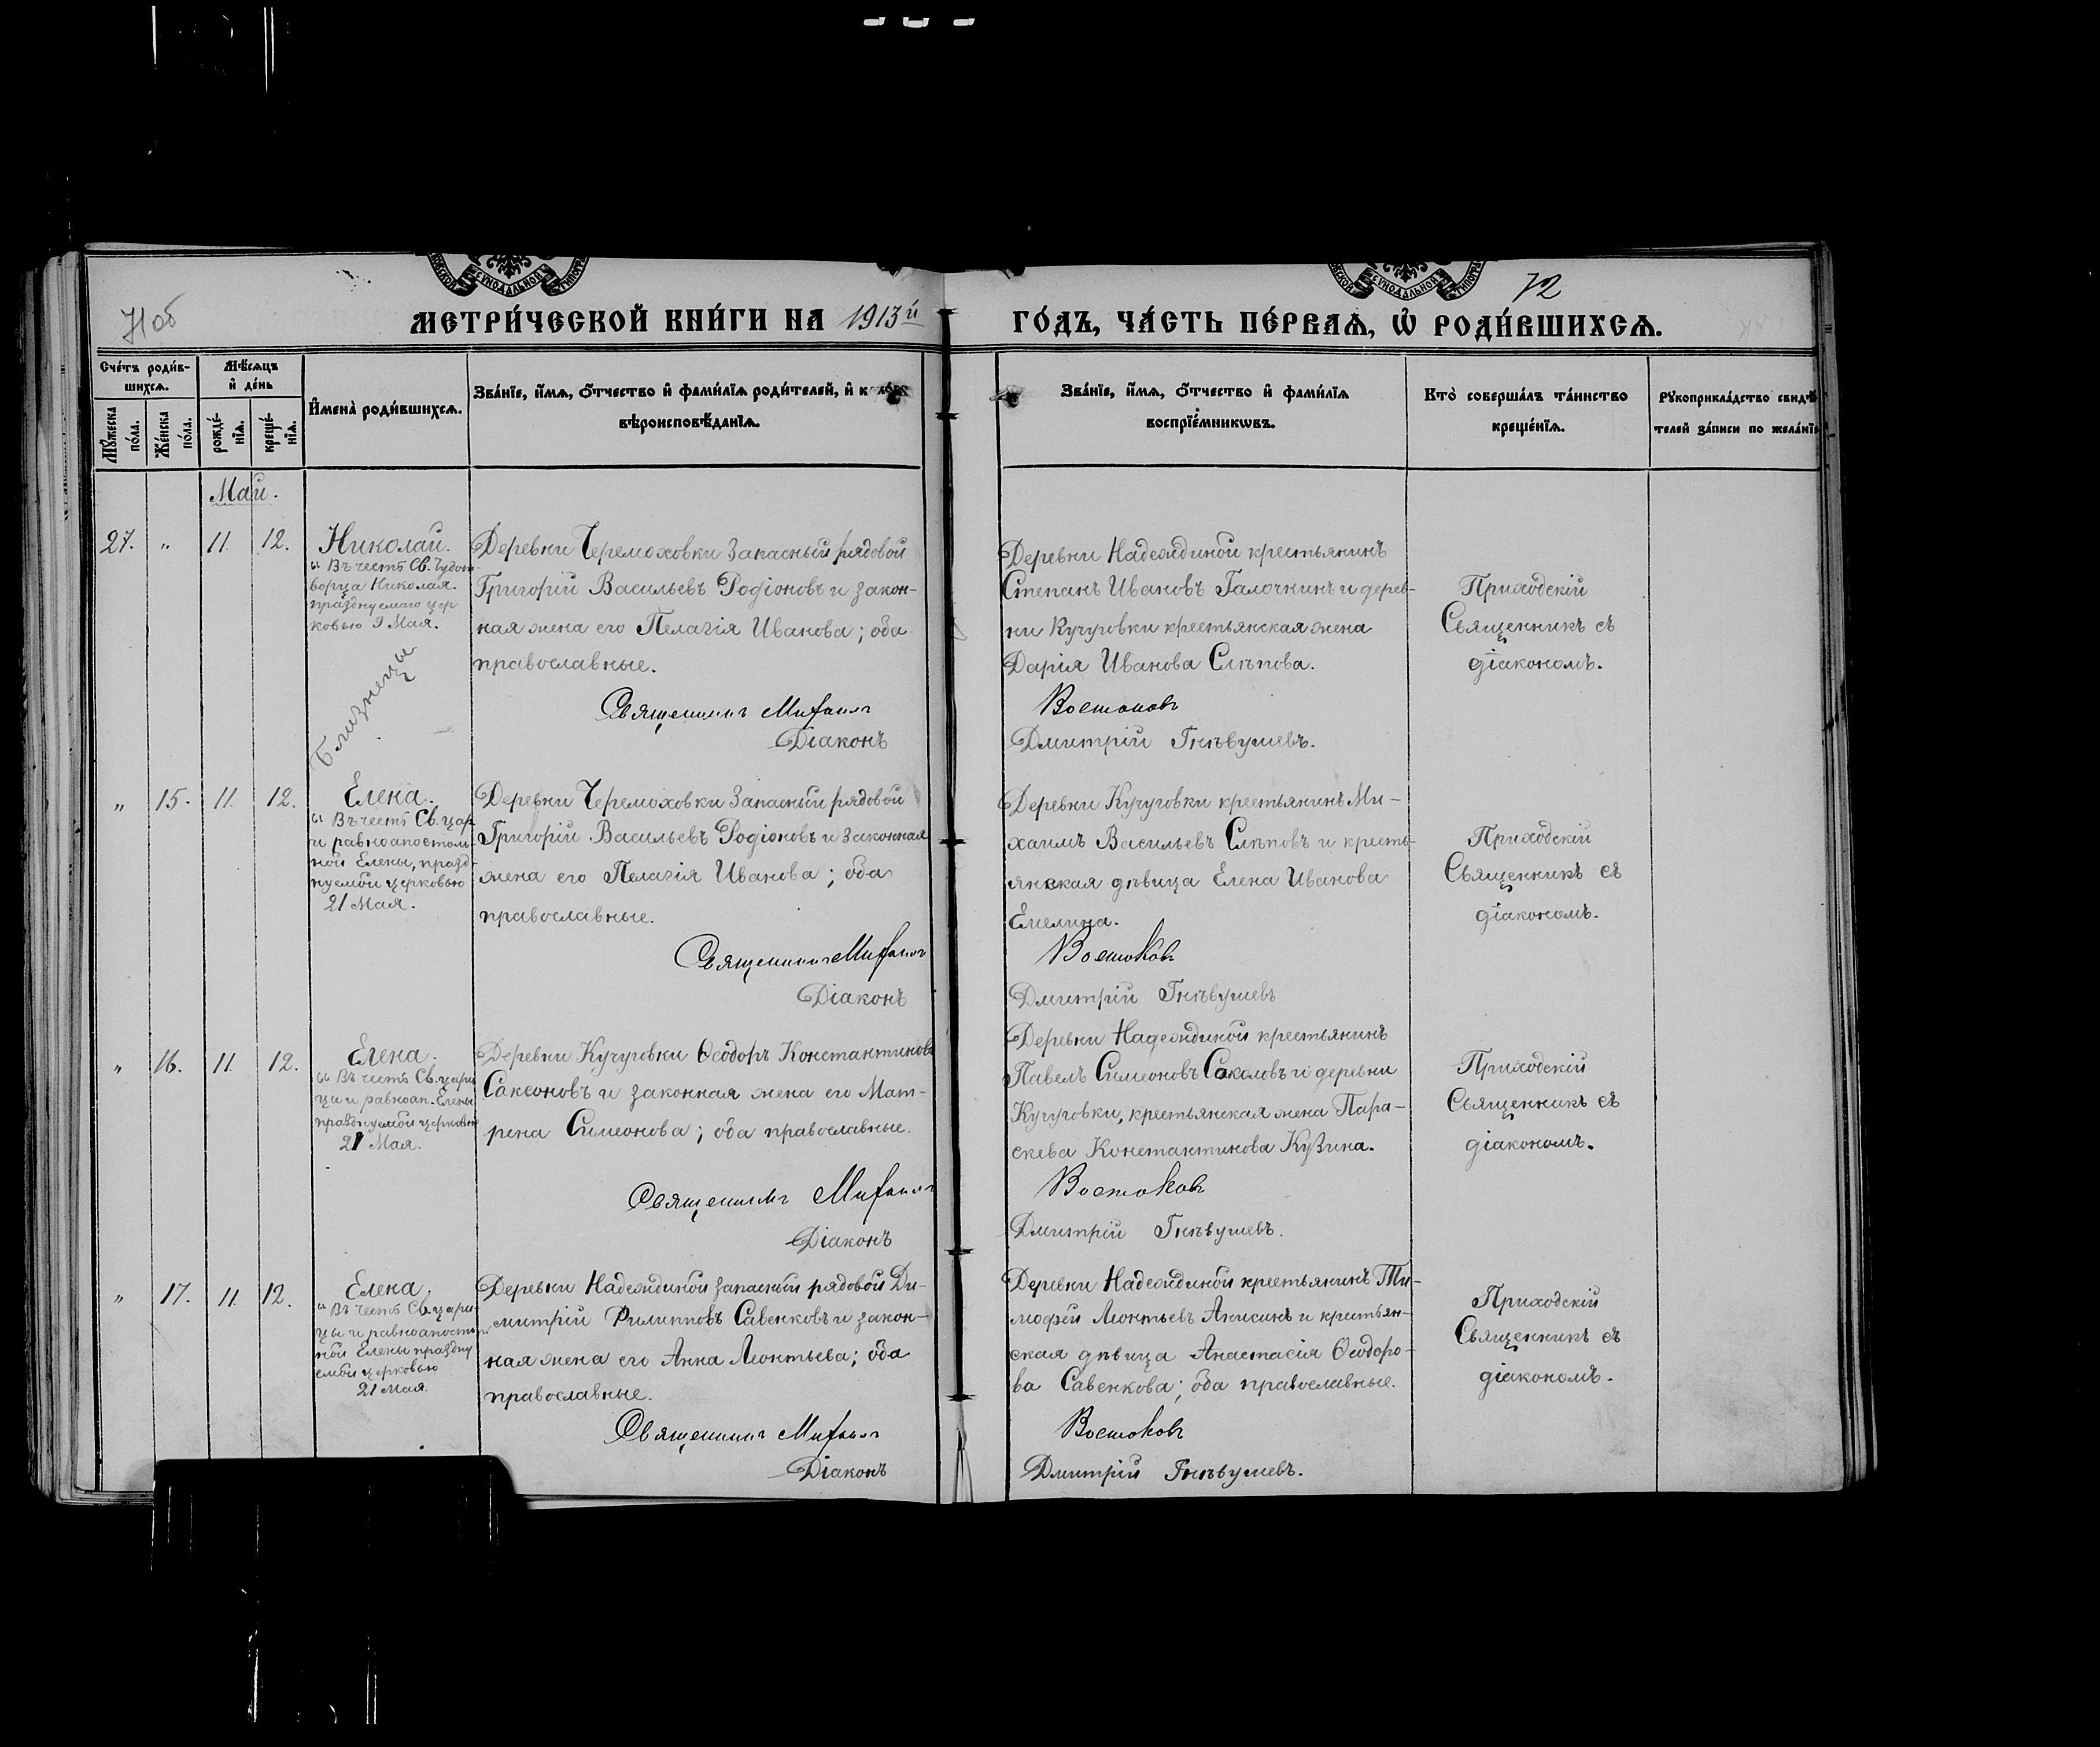 71об
72
МЕТРИ́ЧЕСКОЙ КНИ́ГИ НА 1913й ГО́ДЪ, ЧА́СТЬ ПЕ́РВАѦ, Ѡ҆ РОДИ́ВШИХСѦ.
Сче́тъ роди́в-
шихсѧ.
Мѣ́сѧцъ
и҆ де́нь
Мꙋ́жеска
по́ла.
Же́нска
по́ла.
рожде́-
нїѧ.
креще́-
нїѧ.
И҆мена̀ роди́вшихсѧ.
Зва́нїе, и҆́мѧ, ѻ҆́тчество и҆ фами́лїѧ роди́телей, и҆ к
вѣроисповѣ́данїѧ.
Зва́нїе, и҆́мѧ, ѻ҆́тчество и҆ фами́лїѧ
воспрїе́мникѡвъ.
Кто̀ соверша́лъ та́инство
креще́нїѧ.
Рꙋкоприкла́дство свидѣ́
телей за́писи по жела́нїю
Май.
27. „ 11. 12.
Николай.
„ Въ честь Св. Чудот-
ворца Николая.
празднуемаго цер
ковью 9 Мая.
Близнецы
Деревни Черемоховки Запасный рядовой
Григорій Васильевъ Родіоновъ и закон-
ная жена его Пелагія Иванова; оба
православные.
Священникъ Михаилъ
Діаконъ
Деревни Надеждиной крестьянинъ
Степанъ Ивановъ Галочкинъ и дерев-
ни Кучуговки крестьянская жена
Дарія Иванова Слѣпова.
Востоковъ
Дмитрій Гнѣвушевъ.
Приходскій
Священникъ съ
діакономъ.
„ 15. 11. 12.
Елена.
„ Въ честь Св. цар.
и равноапостоль-
ной Елены, празд-
нуемой церковью
21 Мая.
Деревни Черемоховки Запасный рядовой
Григорій Васильевъ Родіоновъ и законная
жена его Пелагія Иванова; оба
православные.
Священникъ Михаилъ
Діаконъ
Деревни Кучуговки крестьянинъ Ми-
хаилъ Васильевъ Слѣповъ и кресть-
янская дѣвица Елена Иванова
Емелина.
Востоковъ
Дмитрій Гнѣвушевъ
Приходскій
Священникъ съ
діакономъ.
„ 16. 11. 12.
Елена.
„ Въ честь Св. цари
цы и равноап. Елены
празднуемой церковью
21 Мая.
Деревни Кучуговки Ѳеодоръ Константиновъ
Саксоновъ и законная жена его Мат-
рена Симеонова; оба православные.
Священникъ Михаилъ
Діаконъ
Деревни Надеждиной крестьянинъ
Павелъ Симеоновъ Соколовъ и деревни
Кучуговки, крестьянская жена Пара-
скева Константинова Кузина.
Востоковъ
Дмитрій Гнѣвушевъ.
Приходскій
Священникъ съ
діакономъ.
„ 17. 11. 12.
Елена.
„ Въ честь Св. цари-
цы и равноапостоль
ной Елены праздну
емой церковью
21 Мая.
Деревни Надеждиной запасный рядовой Ди-
митрій Филипповъ Савенковъ и закон-
ная жена его Анна Леонтьева; оба
православные.
Священникъ Михаилъ
Діаконъ
Деревни Надеждиной крестьянинъ Ти-
мофей Леонтьевъ Анисинъ и крестьян-
ская дѣвица Анастасія Ѳеодоро-
ва Савенкова; оба православные.
Востоковъ
Дмитрій Гнѣвушевъ.
Приходскій
Священникъ съ
діакономъ.